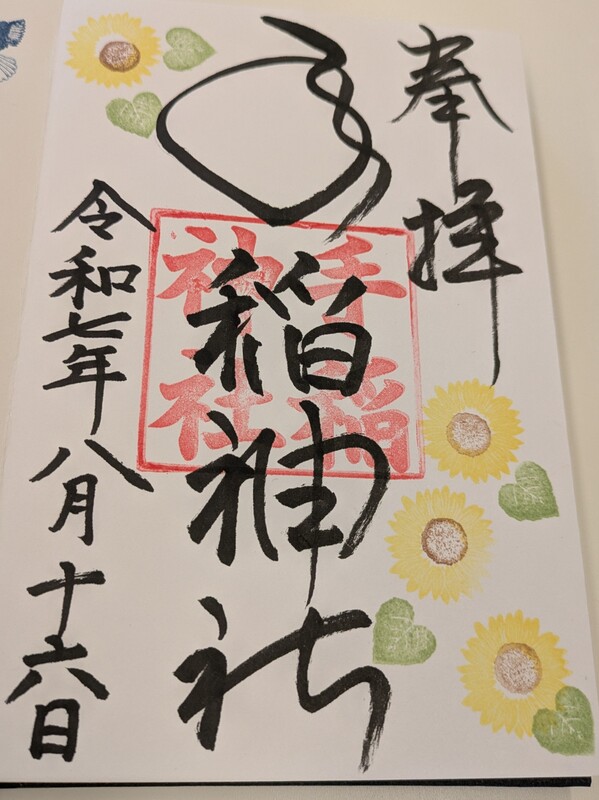 奉拝
手稲神社
手稲神社
令和七年八月十六日